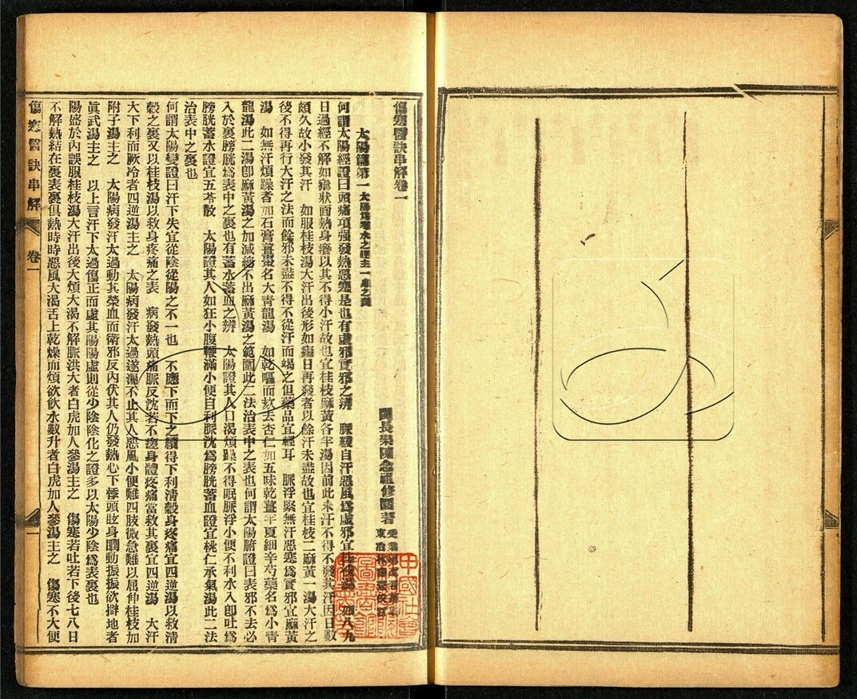 傷寒醫訣串解卷一
閩長樂陳念祖修園著
太陽篇第一
何謂太陽經證曰頭痛項強發熱惡寒是也有虛邪實邪之辨　脈緩自汗惡風為虛邪宜桂枝湯　如八九
日過經不解如瘧狀面熱身癢以其不得小汗故也宜桂枝麻黃各半湯因前此未汗不得不發其汗因日數
頗久故小發其汗　如服桂枝湯大汗出後形如瘧日再發者以餘汗未盡故也宜桂枝二麻黃一湯大汗之
後不得再行大汗之法而餘邪未盡不得不從汗而竭之但藥品宜輕耳　脈浮緊無汗惡寒為實邪宜麻黃
湯　如無汗煩躁者加石膏薑棗名大青龍湯　如乾嘔而欬去杏仁加五味乾薑半夏細辛芍藥名為小青
龍湯此二湯即麻黃湯之加減藥不出麻黃湯之範圍此二法治表中之表也何謂太陽腑證曰表邪不去必
入於裏膀胱為表中之裏也有蓄水蓄血之辨　太陽證其人口渴煩躁不得眠脈浮小便不利水入即吐為
膀胱蓄水證宜五苓散　太陽證其人如狂小腹鞕滿小便自利脈沈為膀胱蓄血證宜桃仁承氣湯此二法
治表中之裏也
何謂太陽變證曰汗下失宜從陰從陽之不一也　不應下而下之續得下利清穀身疼痛宜四逆湯以救清
穀之裏又以桂枝湯以救身疼痛之表　病發熱頭痛脈反沈若不瘥身體疼痛當救其裏宜四逆湯　大汗
大下利而厥冷者四逆湯主之　太陽病發汗太過遂漏不止其人惡風小便難四肢微急難以屈伸桂枝加
附子湯主之　太陽病發汗太過動其榮血而衛邪反內伏其人仍發熱心下悸頭眩身瞤動振振欲擗地者
眞武湯主之　以上言汗下太過傷正而虛其陽陽虛則從少陰陰化之證多以太陽少陰為表裏也
陽盛於內誤服桂枝湯大汗出後大煩大渴不解脈洪大者白虎加人參湯主之　傷寒若吐若下後七八日
不解熱結在裏表裏俱熱時時惡風大渴舌上乾燥而煩欲飲水數升者白虎加人參湯主之　傷寒不大便
傷寒醫訣串解
卷一
一